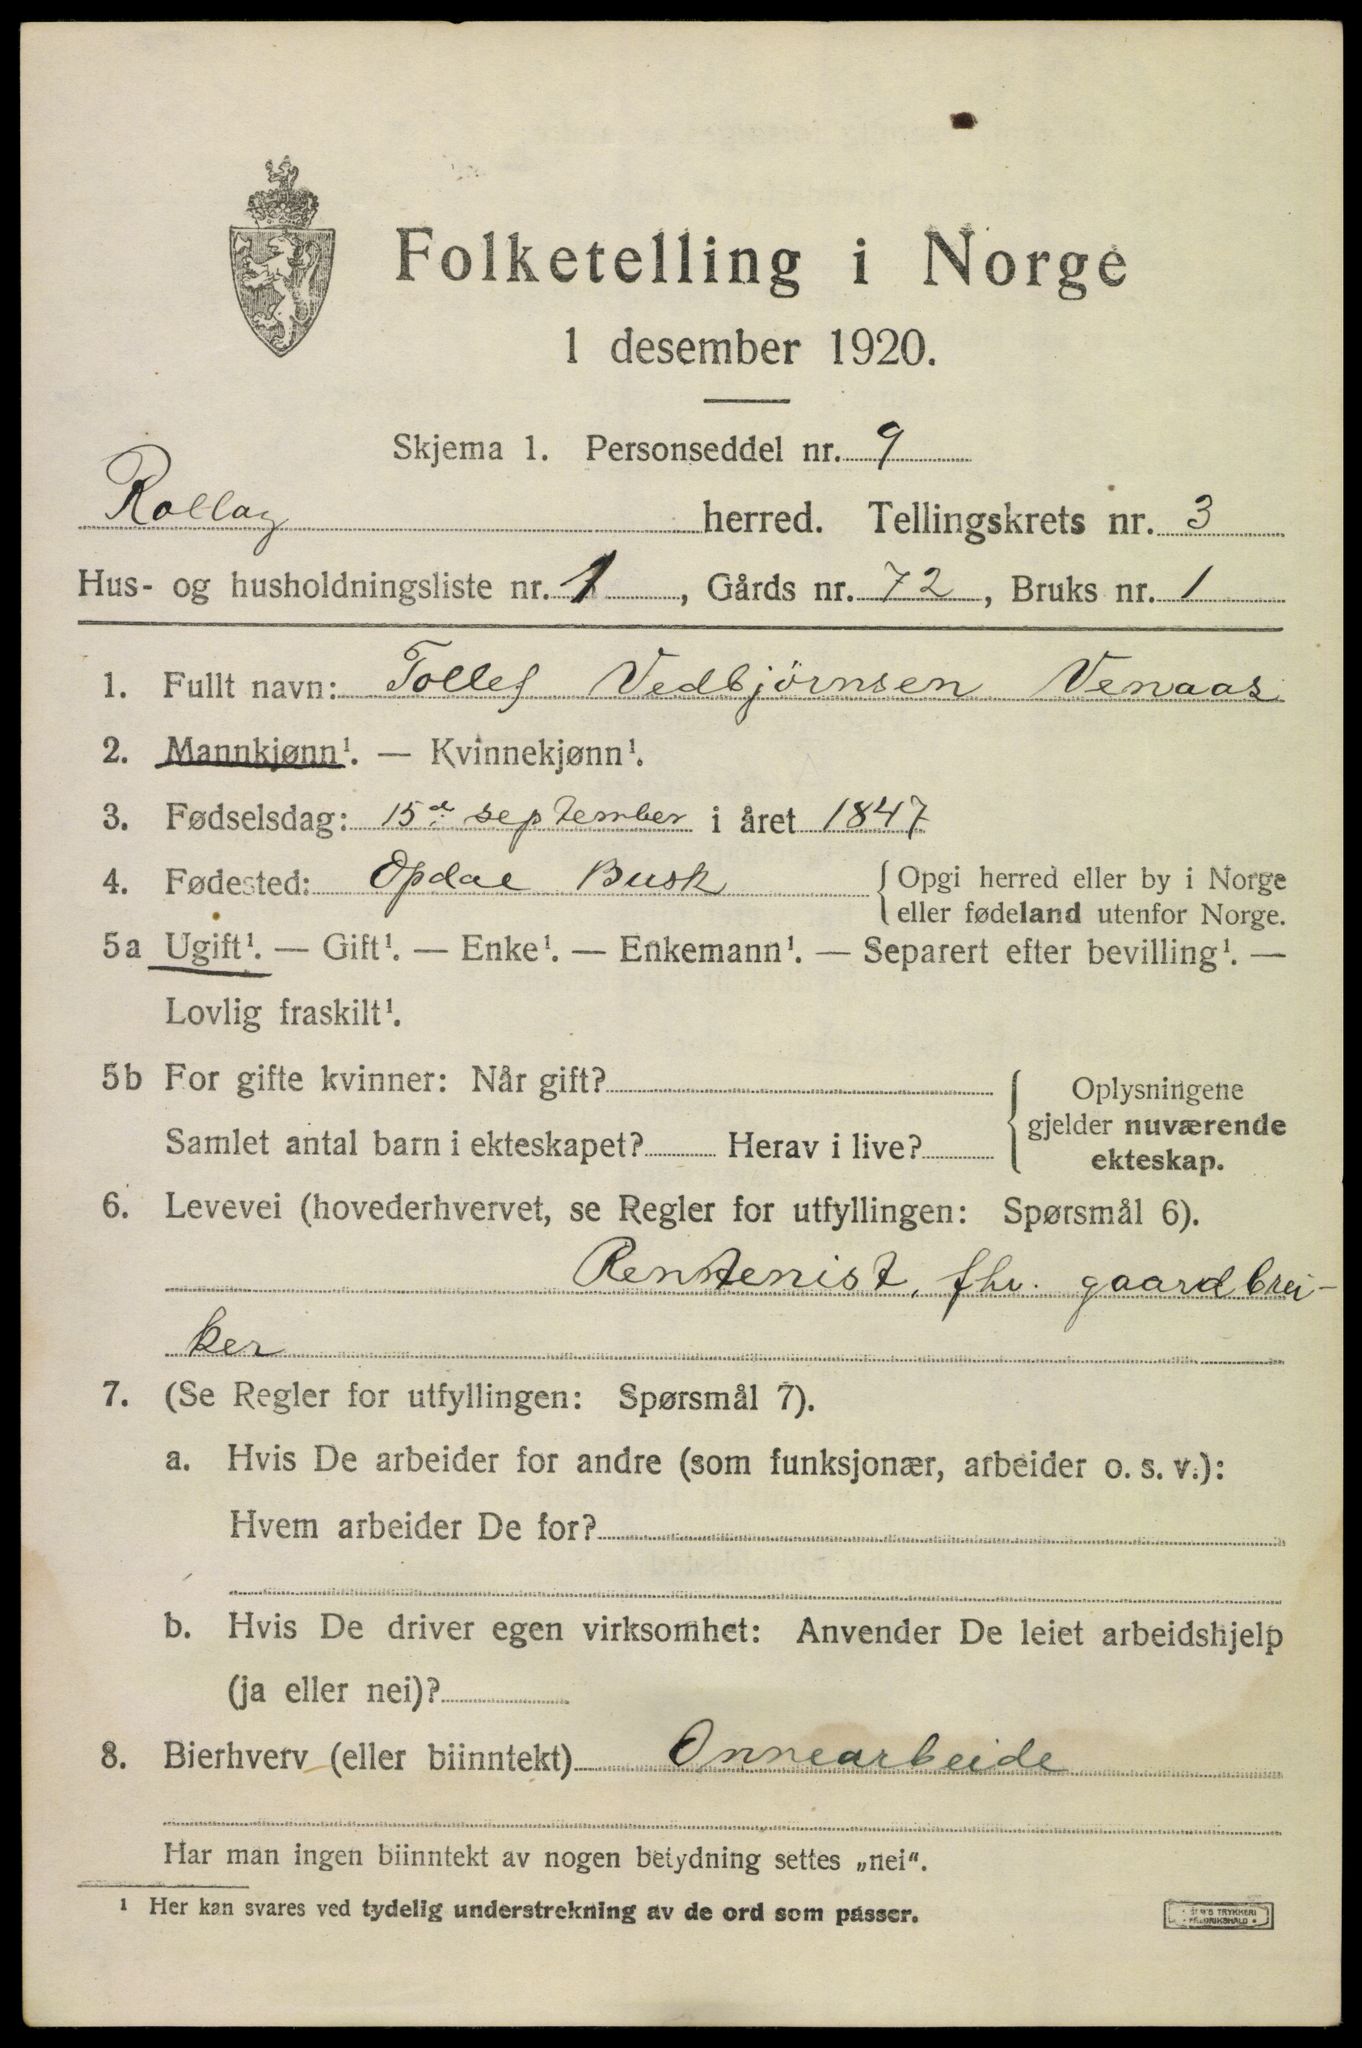 Folketelling i Norge
1 desember 1920.
Skjema 1. Personseddel nr. 9
Rollag herred. Tellingskrets nr. 3
Hus- og husholdningsliste nr. 1, Gårds nr. 72, Bruks nr. 1
1. Fullt navn: Tollef Vedbjørnsen Venaas
2. Mannkjønn¹. — Kvinnekjønn¹.
3. Fødselsdag: 15d. september i året 1847
4. Fødested: Opdal Busk { Opgi herred eller by i Norge
eller fødeland utenfor Norge.
5a Ugift¹. — Gift¹. — Enke¹. — Enkemann¹. — Separert efter bevilling¹. —
Lovlig fraskilt¹.
5b For gifte kvinner: Når gift?
Samlet antal barn i ekteskapet? Herav i live?
{ Oplysningene
gjelder nuværende
ekteskap.
6. Levevei (hovederhvervet, se Regler for utfyllingen: Spørsmål 6).
Rentenist, fhv. gaardbrei-
ker
7. (Se Regler for utfyllingen: Spørsmål 7).
a. Hvis De arbeider for andre (som funksjonær, arbeider o. s. v.):
Hvem arbeider De for?
b. Hvis De driver egen virksomhet: Anvender De leiet arbeidshjelp
(ja eller nei)?
8. Bierhverv (eller biinntekt) Onnearbeide
Har man ingen biinntekt av nogen betydning settes „nei“.
¹ Her kan svares ved tydelig understrekning av de ord som passer.
TRYKKERI
FREDRIKSHALD